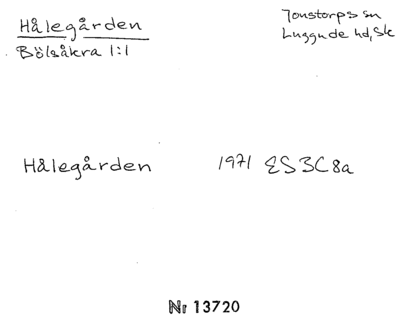 Hålegården
Bölsåkra 1:1
Jonstorps sn
Luggude hd, Sk
Hålegården 1971 ES3C8a
Nr 13720